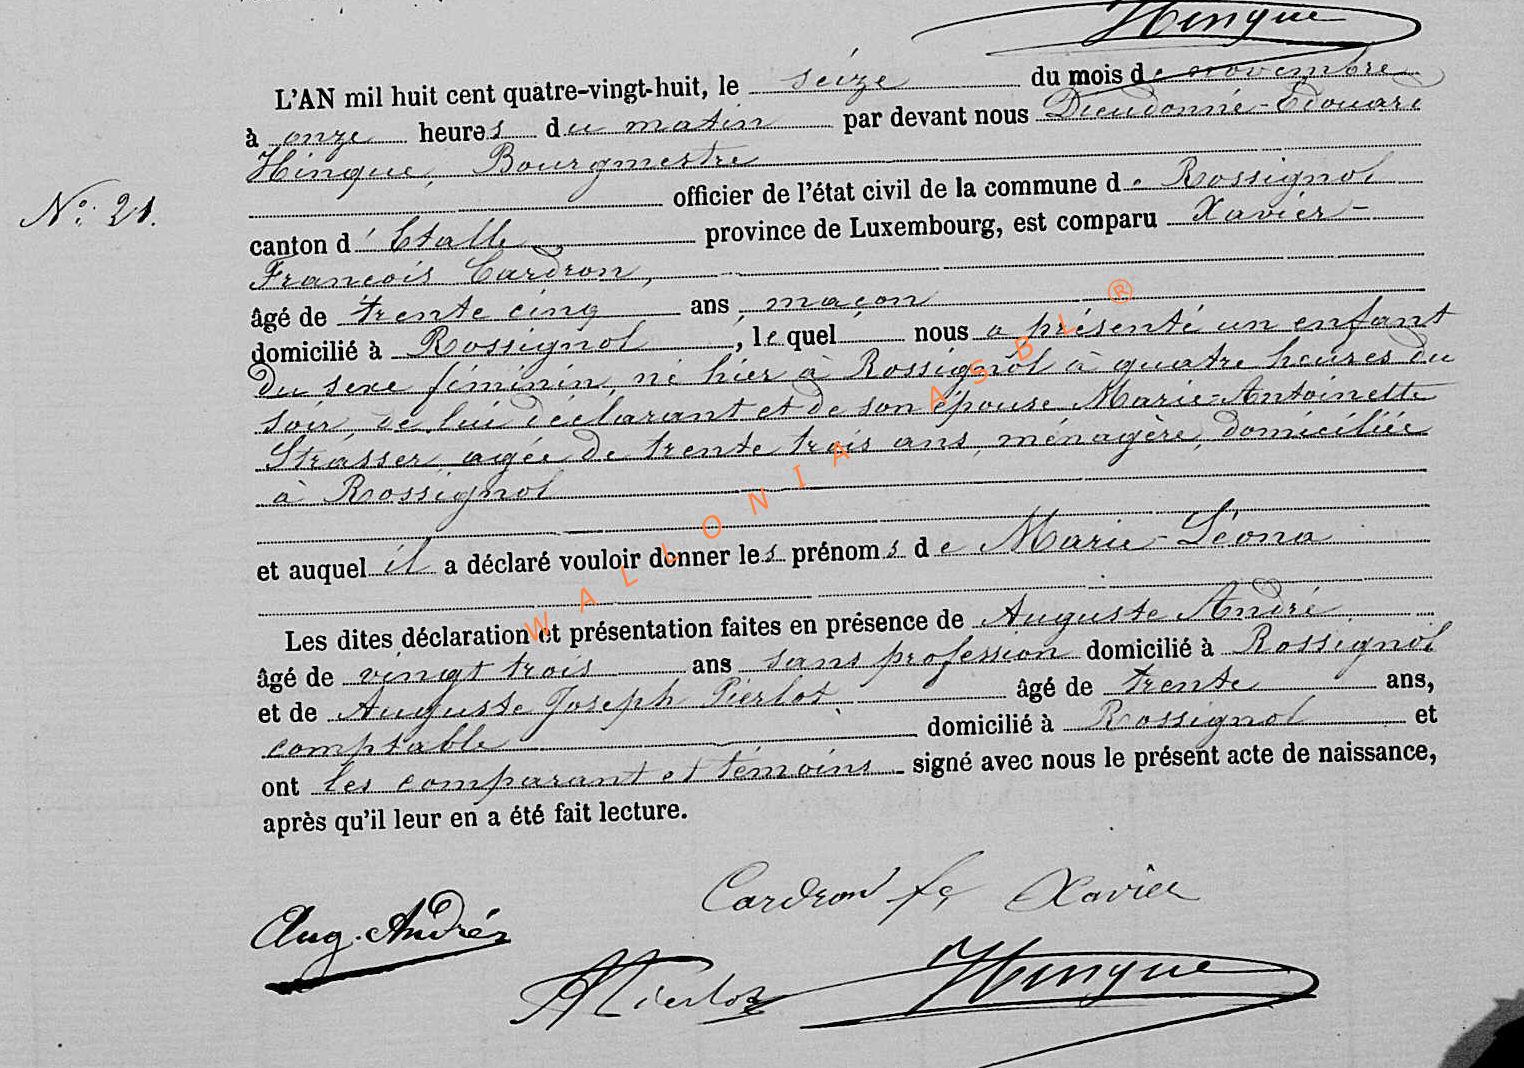 Hinque
L'AN mil huit cent quatre-vingt-huit, le seize du mois de novembre
à onze heures du matin par devant nous Dieudonné-Edouard
Hinque, Bourgmestre
officier de l'état civil de la commune de Rossignol
N° 21.
canton d'Etalle, province de Luxembourg, est comparu Xavier-
François Cardron,
âgé de trente cinq ans, maçon
domicilié à Rossignol, lequel nous a présenté un enfant
du sexe féminin, né hier à Rossignol à quatre heures du
soir, de lui déclarant et de son épouse Marie-Antoinette
Strasser, agée de trente trois ans, ménagère, domiciliée
à Rossignol
et auquel il a déclaré vouloir donner les prénoms de Marie-Léona
Les dites déclaration et présentation faites en présence de Auguste André
âgé de vingt trois ans sans profession domicilié à Rossignol
et de Auguste Joseph Pierlot âgé de trente ans,
comptable domicilié à Rossignol et
ont les comparant et témoins signé avec nous le présent acte de naissance,
après qu'il leur en a été fait lecture.
Cardron fç Xavier
Aug. André
APierlot Hinque
WALLONIA ASBL ®